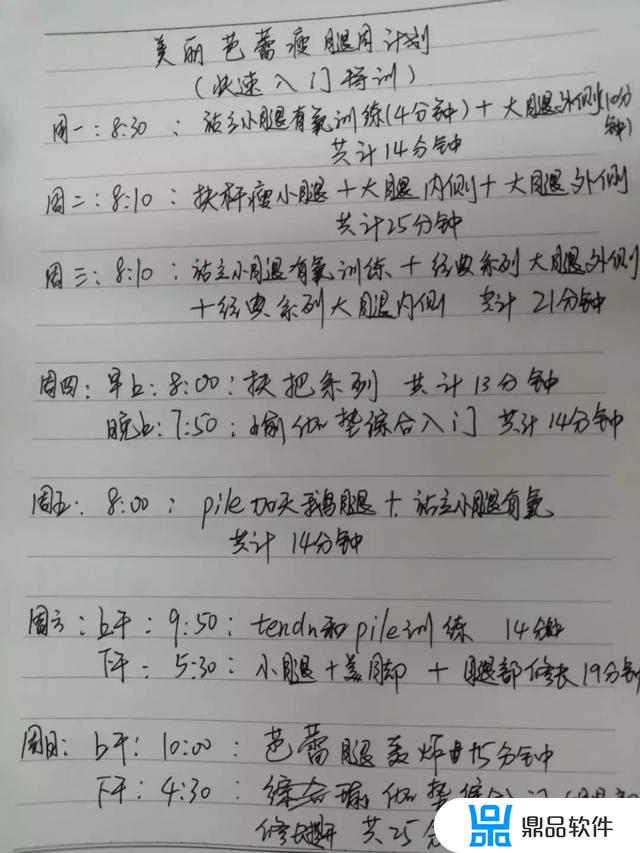 美丽芭蕾瘦腿周计划
(快速入门特训)
周一:8:30:站立小腿有氧训练(4分钟)+大腿外侧(10分钟)
共计14分钟
周二:8:10:扶杆瘦小腿+大腿内侧+大腿外侧
共计25分钟
周三:8:10:站立小腿有氧训练+经典系列大腿外侧
+经典系列大腿内侧 共计21分钟
周四:早上:8:00:扶把系列 共计13分钟
晚上:7:50:瑜伽垫综合入门 共计14分钟
周五:8:00:pile加天鹅腿+站立小腿有氧
共计14分钟
周六:上午:9:50:tendn和pile训练 14分钟
下午:5:30:小腿+美脚+腿部修长19分钟
周日:上午:10:00:芭蕾腿轰炸 15分钟
下午:4:30:综合瑜伽垫综合入门(
修长 共25分
鼎品软件